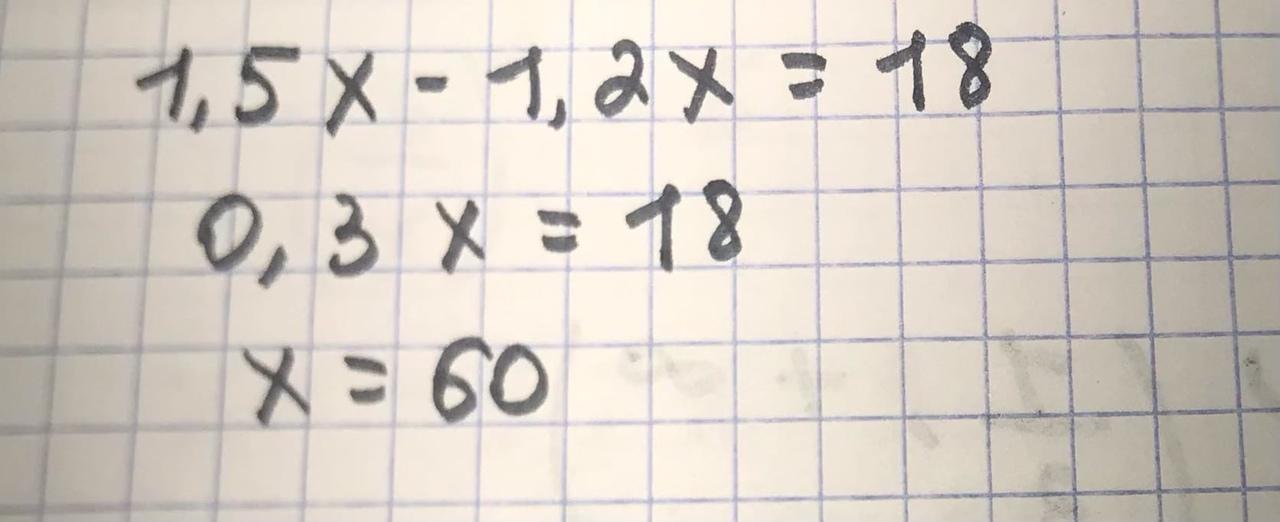 1,5x - 1,2x = 18
0,3x = 18
x = 60